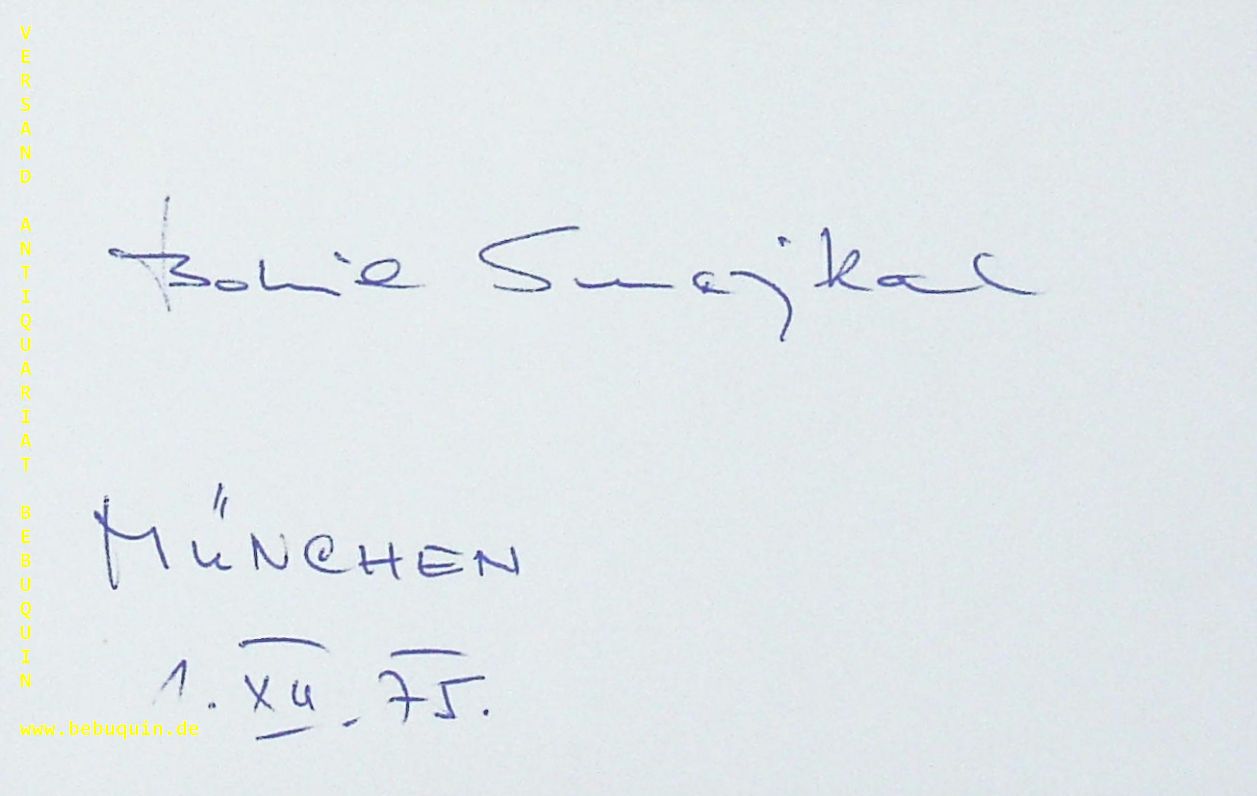 VERSAND ANTIQUARIAT BEBUQUIN
Smajkal
MÜNCHEN
1. XII. 75.
www.bebuquin.de